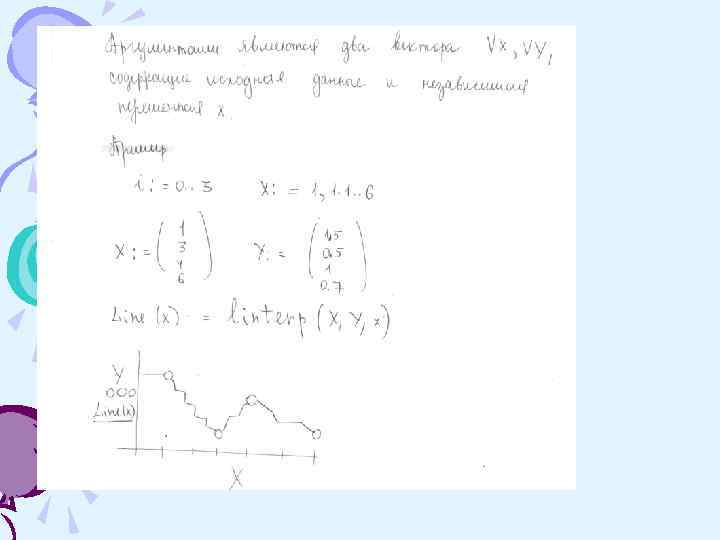 Аргументами являются два вектора VX, VY,
содержащие исходные данные и независимая
переменная x.
Пример
i := 0..3 X: = 1, 1.1..6
X := (1 3 4 6) Y: = (1,5 0,5 1 0.7)
Line (x) = linterp (X, Y, x)
Y
000
Line(x)
X